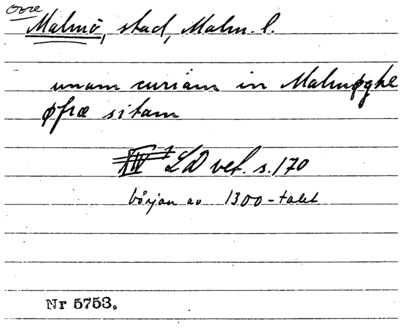 Övre
Malmö, stad, Malm. l.
unam curiam in Malmøghe
øfræ sitam
LD vet. s. 170
början av 1300-talet
Nr 5753.